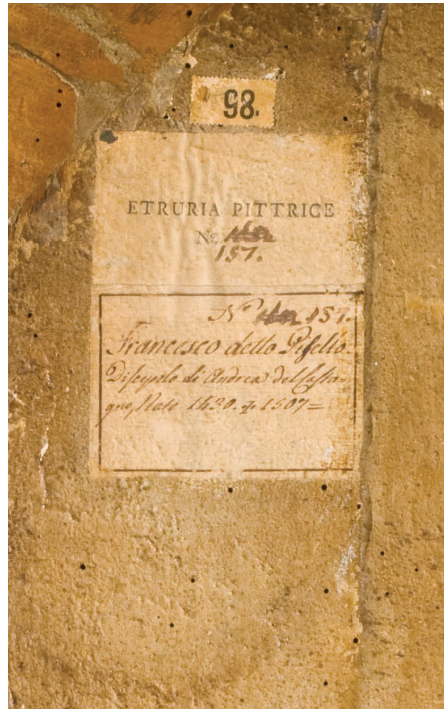 98.
ETRURIA PITTRICE
No.
157.
No 157.
Francesco detto Pisello.
Discepolo di Andrea del Casta=
gno, Nato 1430. + 1507=